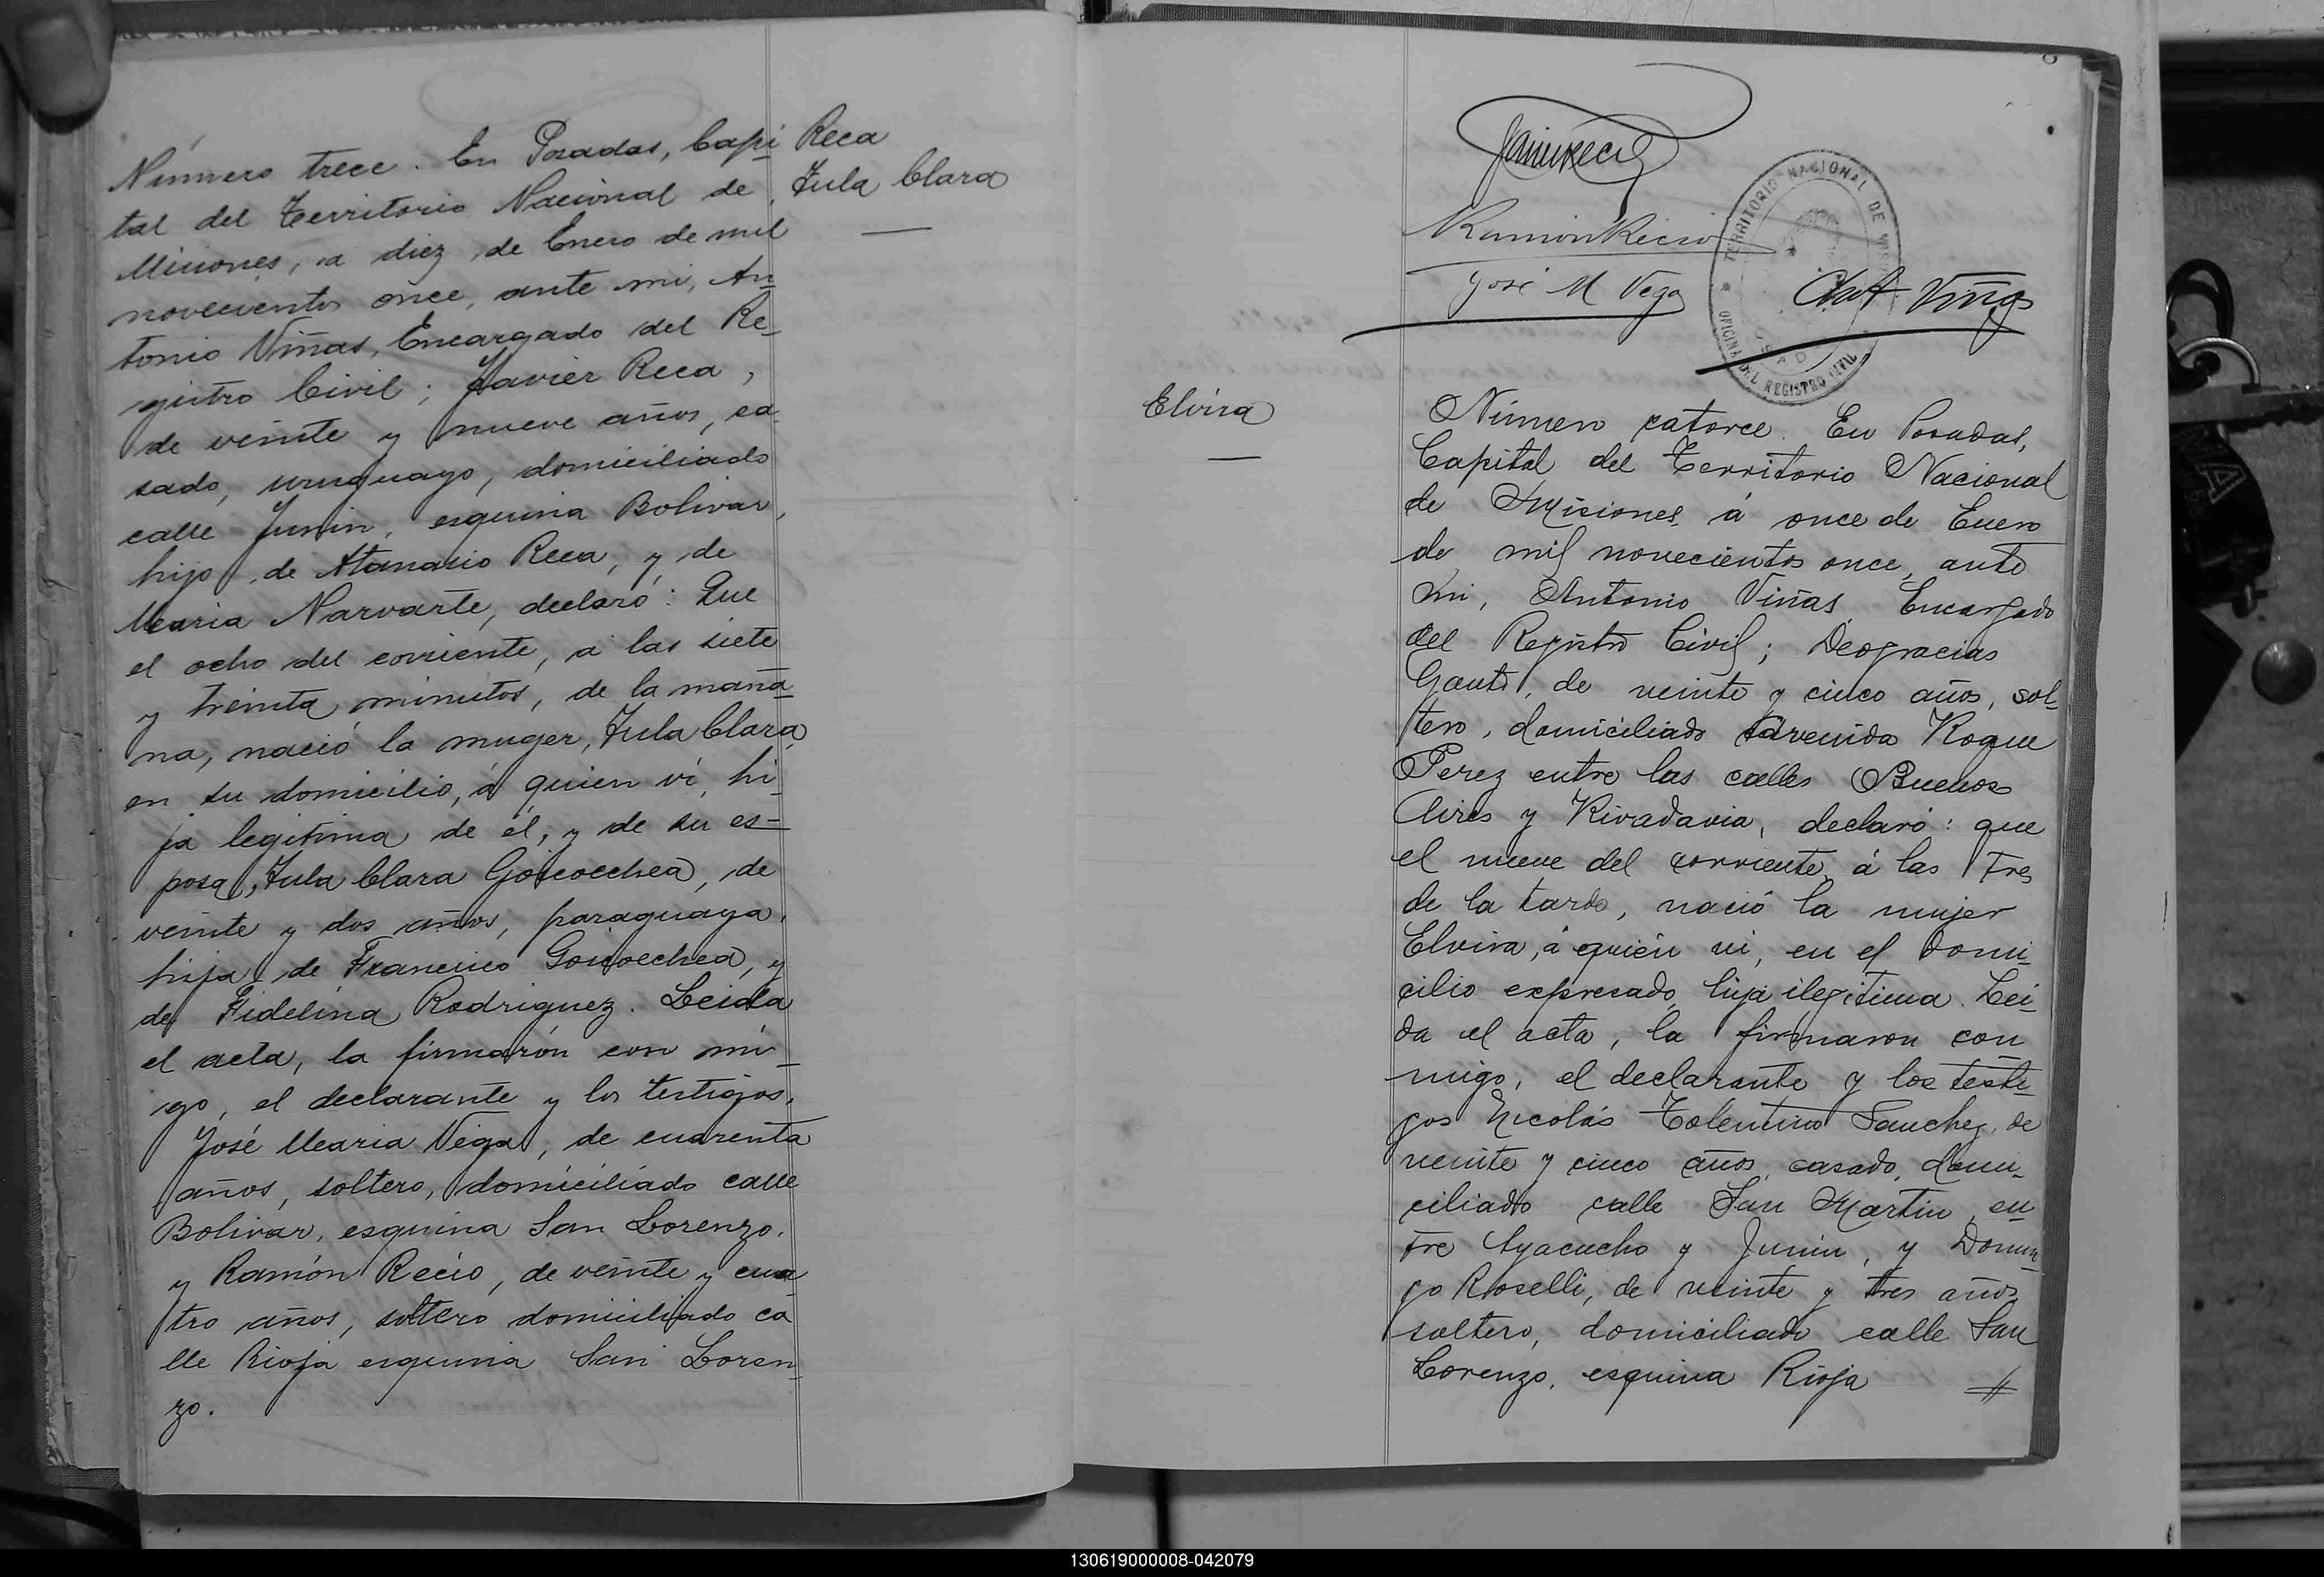 Número trece. En Posadas, Capi
tal del Territorio Nacional de
Misiones, a diez de Enero de mil
novecientos once, ante mi, An
tonio Viñas, Encargado del Re
gistro Civil; Javier Reca,
de veinte y nueve años, ca
sado, uruguayo, domiciliado
calle Junin, esquina Bolivar,
hijo de Atanacio Reca, y de
Maria Narvarte, declaró: Que
el ocho del corriente, a las siete
y treinta minutos, de la maña
na, nació la muger, Tula Clara
en su domicilio, á quien ví, hi
ja legitima de él, y de su es-
posa, Tula Clara Goicoechea, de
veinte y dos años, paraguaya,
hija de Francisco Goicoechea, y
de Fidelina Rodriguez. Leida
el acta, la firmarón con mi
go, el declarante y los testigos,
José Maria Vega, de cuarenta
años, soltero, domiciliado calle
Bolivar, esquina San Lorenzo,
y Ramón Recio, de veinte y cua
tro años, soltero domiciliado ca
lle Rioja esquina San Loren
zo.
Reca
Tula Clara
Ramón Recio
José M Vega
Ant Viñas
TERRITORIO NACIONAL DE
OFICINA DEL REGISTRO CIVIL
Elvira
Número catorce. En Posadas,
Capital del Territorio Nacional
de Misiones, á once de Enero
de mil novecientos once, ante
mi, Antonio Viñas, Encargado
del Registro Civil; Deogracias
Gauto, de veinte y cinco años, sol
tero, domiciliado Avenida Roque
Perez entre las calles Buenos
Aires y Rivadavia, declaró: que
el nueve del corriente, á las tres
de la tarde, nació la mujer
Elvira, á quien vi, en el domi
cilio expresado, hija ilegitima. Lei
da el acta, la firmaron con
migo, el declarante y los testi
gos Nicolás Tolentino Sanchez, de
veinte y cinco años, casado, domi
ciliado calle San Martin, en
tre Ayacucho y Junin, y Domin
go Roselli, de veinte y tres años
soltero, domiciliado calle San
Lorenzo, esquina Rioja
130619000008-042079